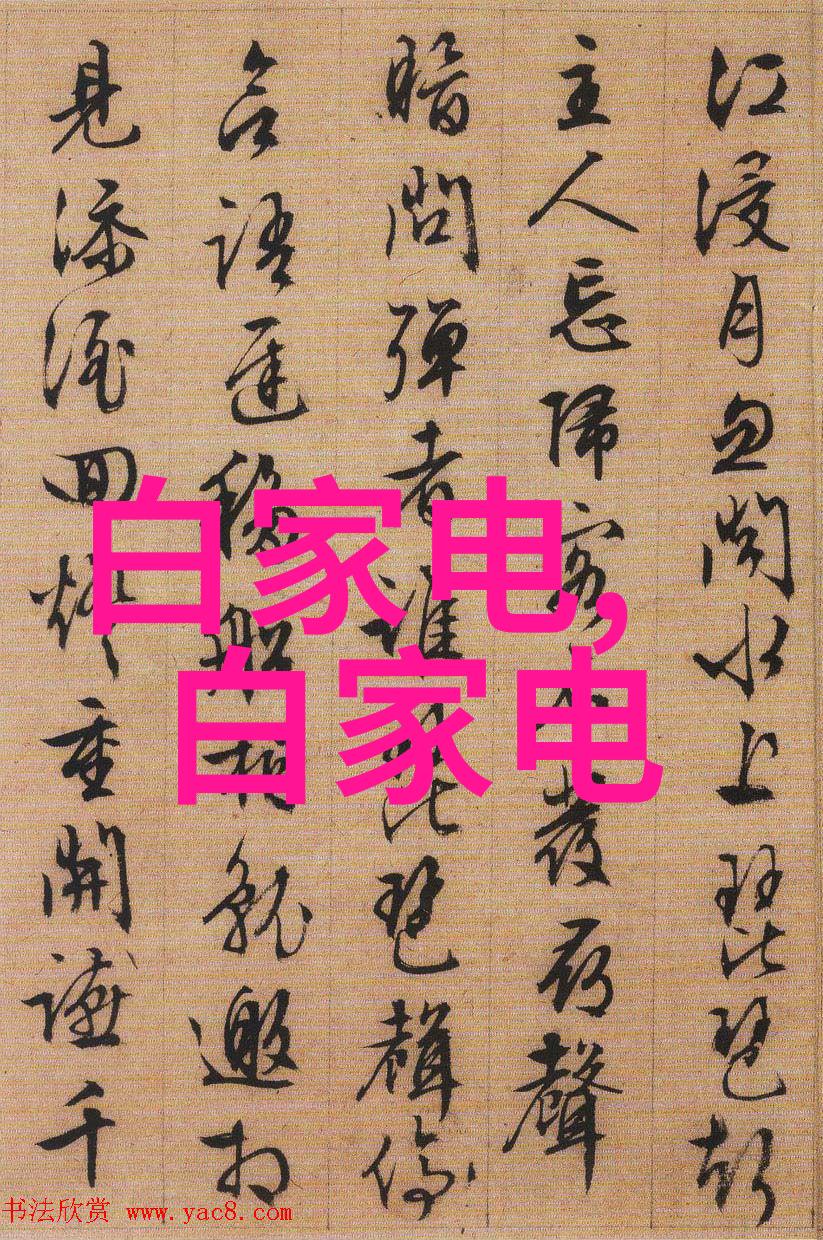 江浸月忽聞水上琵琶
主人忘歸客不發尋聲
暗問彈者誰琵琶聲停
語遲移船相就邀相
見添酒回燈重開讌千
白家电,
白家电
书法欣赏 www.yac8.com